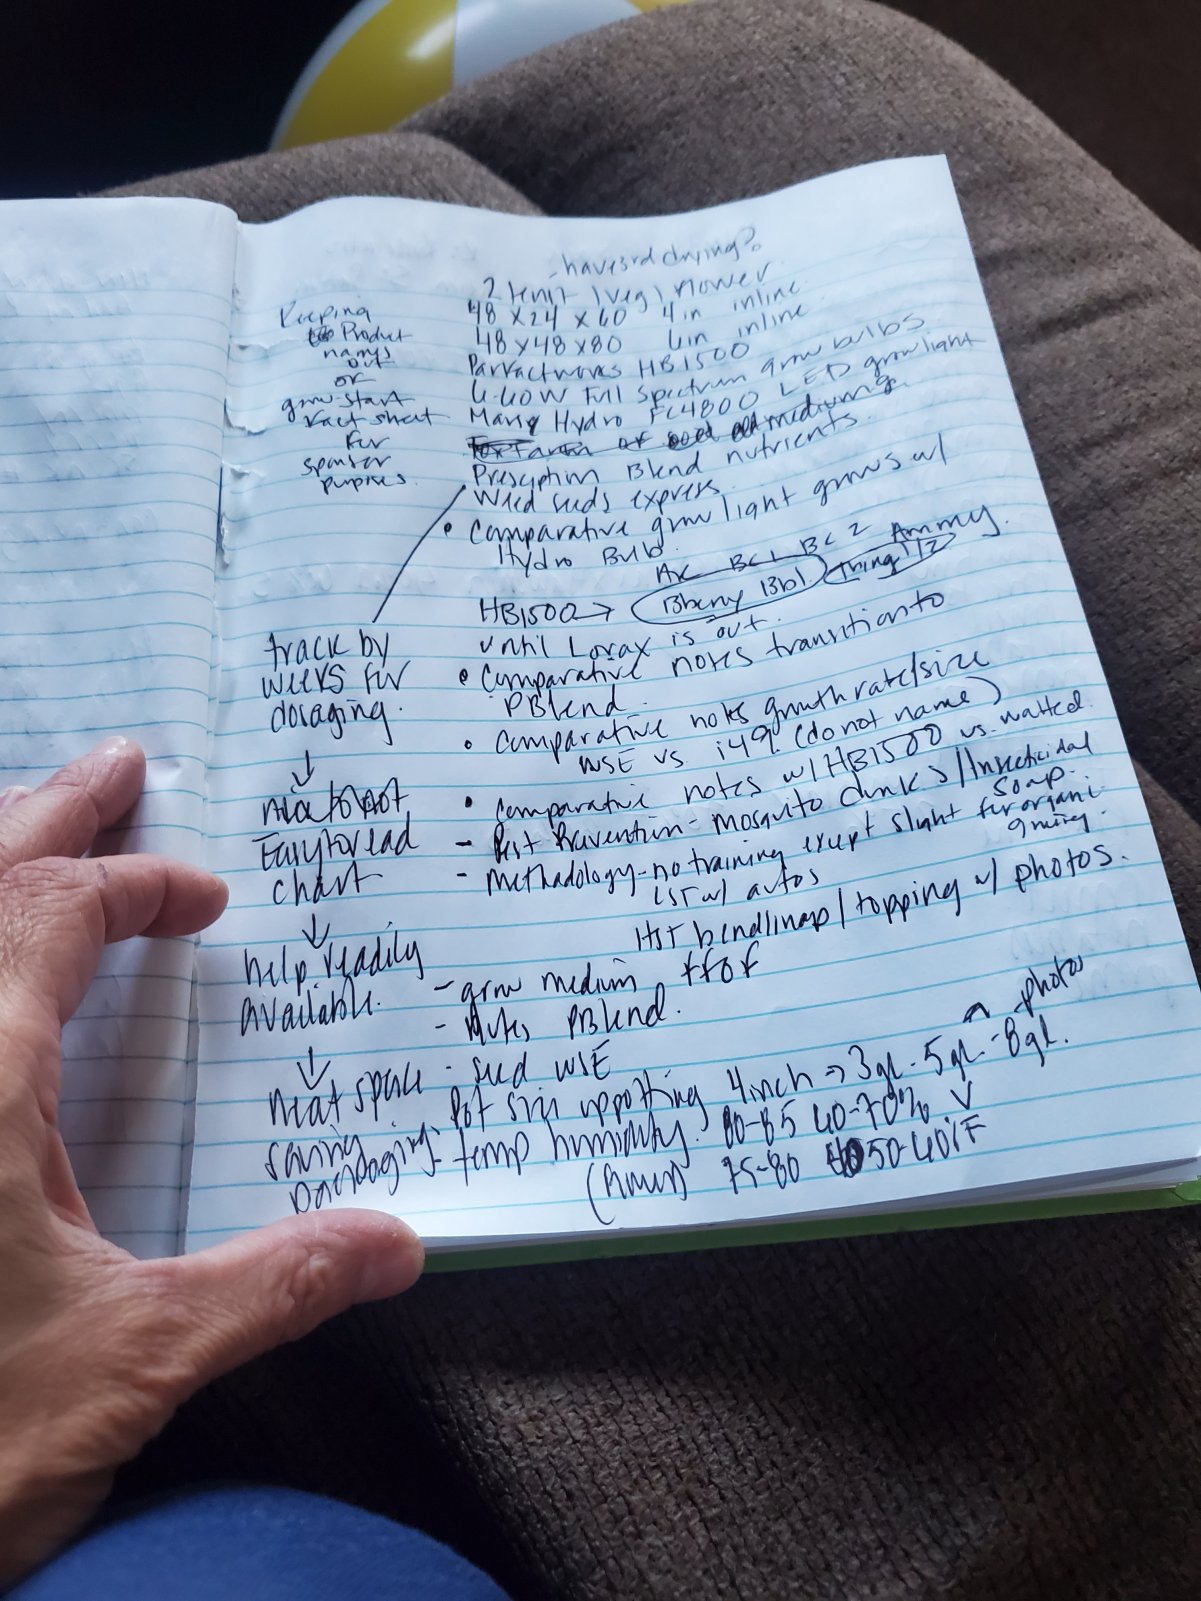 have 3rd drying?
2 tent (veg) flower
48 x 24 x 60 4 in inline
48 x 48 x 80 6 in inline
HB1500
Full Spectrum grow bulbs
Mars Hydro FC4800 LED grow light
mediums
Blend nutrients
Weed seeds express
• Comparative grow light grows w/
Hydro Bulb.
BC1 BC2 Ammy.
HB1500 → Bberry Bb1 Thing 1/2
until Lorax is out.
• Comparative notes transition to
PBlend.
• Comparative notes growth rate/size
WSE vs. i49. (do not name)
• Comparative notes w/ HB1500 vs. watted.
- Pest Prevention - Mosquito dunks / Insecticidal
Soap.
- Methadology - no training except slight for organi
LST w/ autos
HST bend/ / topping w/ photos.
- grow medium FFOF
- Nutes PBlend.
- seed WSE
Pot size uppotting 4 inch → 3 gl. - 5 gl. - 8 gl. photos
- temp humidity. 80-85 60-70% V
75-80 50-40 F
Keeping
Product
names
out
or
grow start
fact sheet
for
sponsor
purposes.
track by
weeks for
dosaging.
↓
Easy to read
chart
↓
help readily
available.
↓
neat space
saving
packaging.